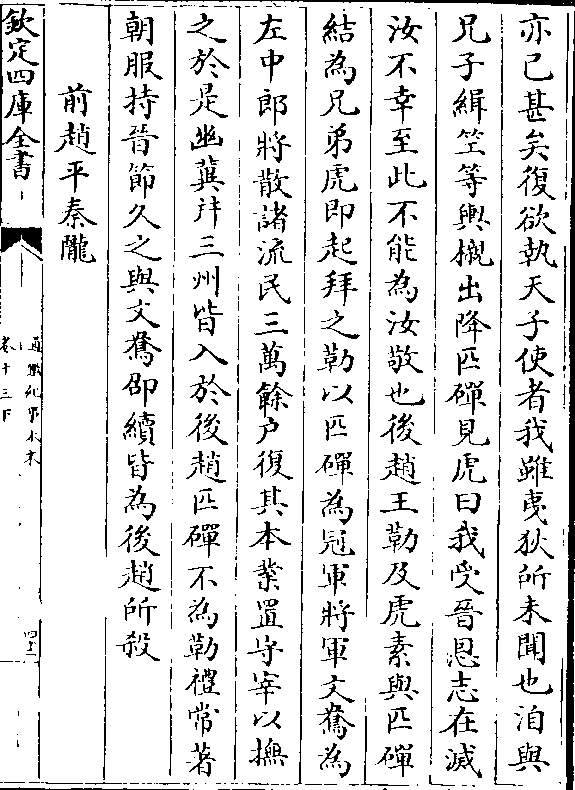 亦已甚矣復欲執天子使者我雖夷狄所未聞也洎與
兄子緝笁等輿櫬出降匹磾見虎曰我受晉恩志在滅
汝不幸至此不能為汝敬也後趙王勒及虎素與匹磾
結為兄弟虎即起拜之勒以匹磾為冠軍將軍文鴦為
左中郎將散諸流民三萬餘户復其本業置守宰以撫
之於是幽冀并三州皆入於後趙匹磾不為勒禮常著
朝服持晉節久之與文鴦邵續皆為後趙所殺
前趙平秦隴
欽定四庫全書
通鑑紀事本末
卷十三下
四十二